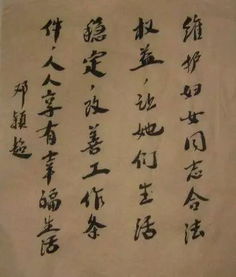 维护妇女同志合法
权益，让她们生活
稳定，改善工作条
件，人人享有幸福生活
邓颖超